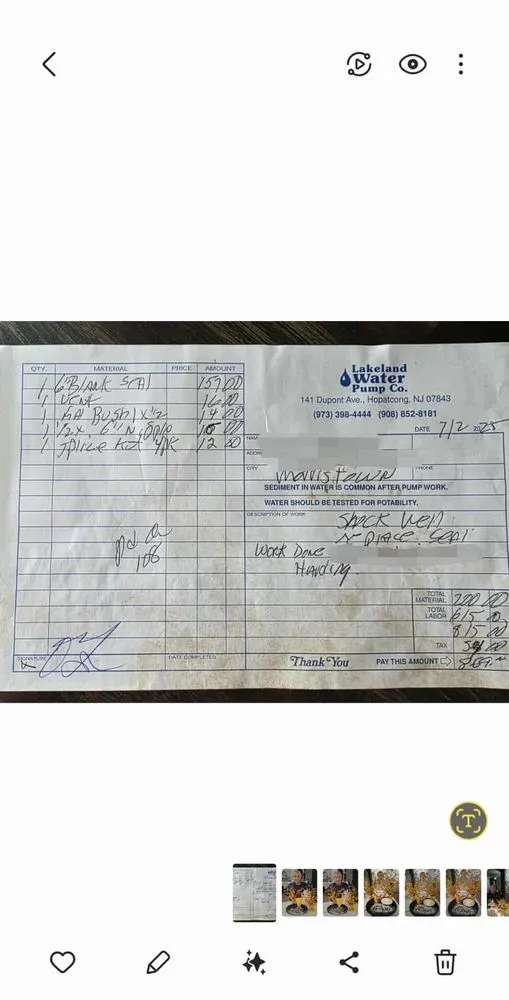 QTY. MATERIAL PRICE AMOUNT
1 6" Blank Seal 157.00
1 Vent 16.00
1 Bush 1x½ 14.00
1 ½ x 6" 
1 Splice Kit 12 00
Lakeland
Water
Pump Co.
141 Dupont Ave., Hopatcong, NJ 07843
(973) 398-4444 (908) 852-8181
DATE 7/2 2025
NAM
ADDR
CITY Morristown PHONE
SEDIMENT IN WATER IS COMMON AFTER PUMP WORK.
WATER SHOULD BE TESTED FOR POTABILITY.
DESCRIPTION OF WORK Shock Well
Replace Seal
Work Done
108
TOTAL MATERIAL 200 00
TOTAL LABOR 615 00
815 00
TAX
SIGNATURE
DATE COMPLETED
Thank You PAY THIS AMOUNT
T